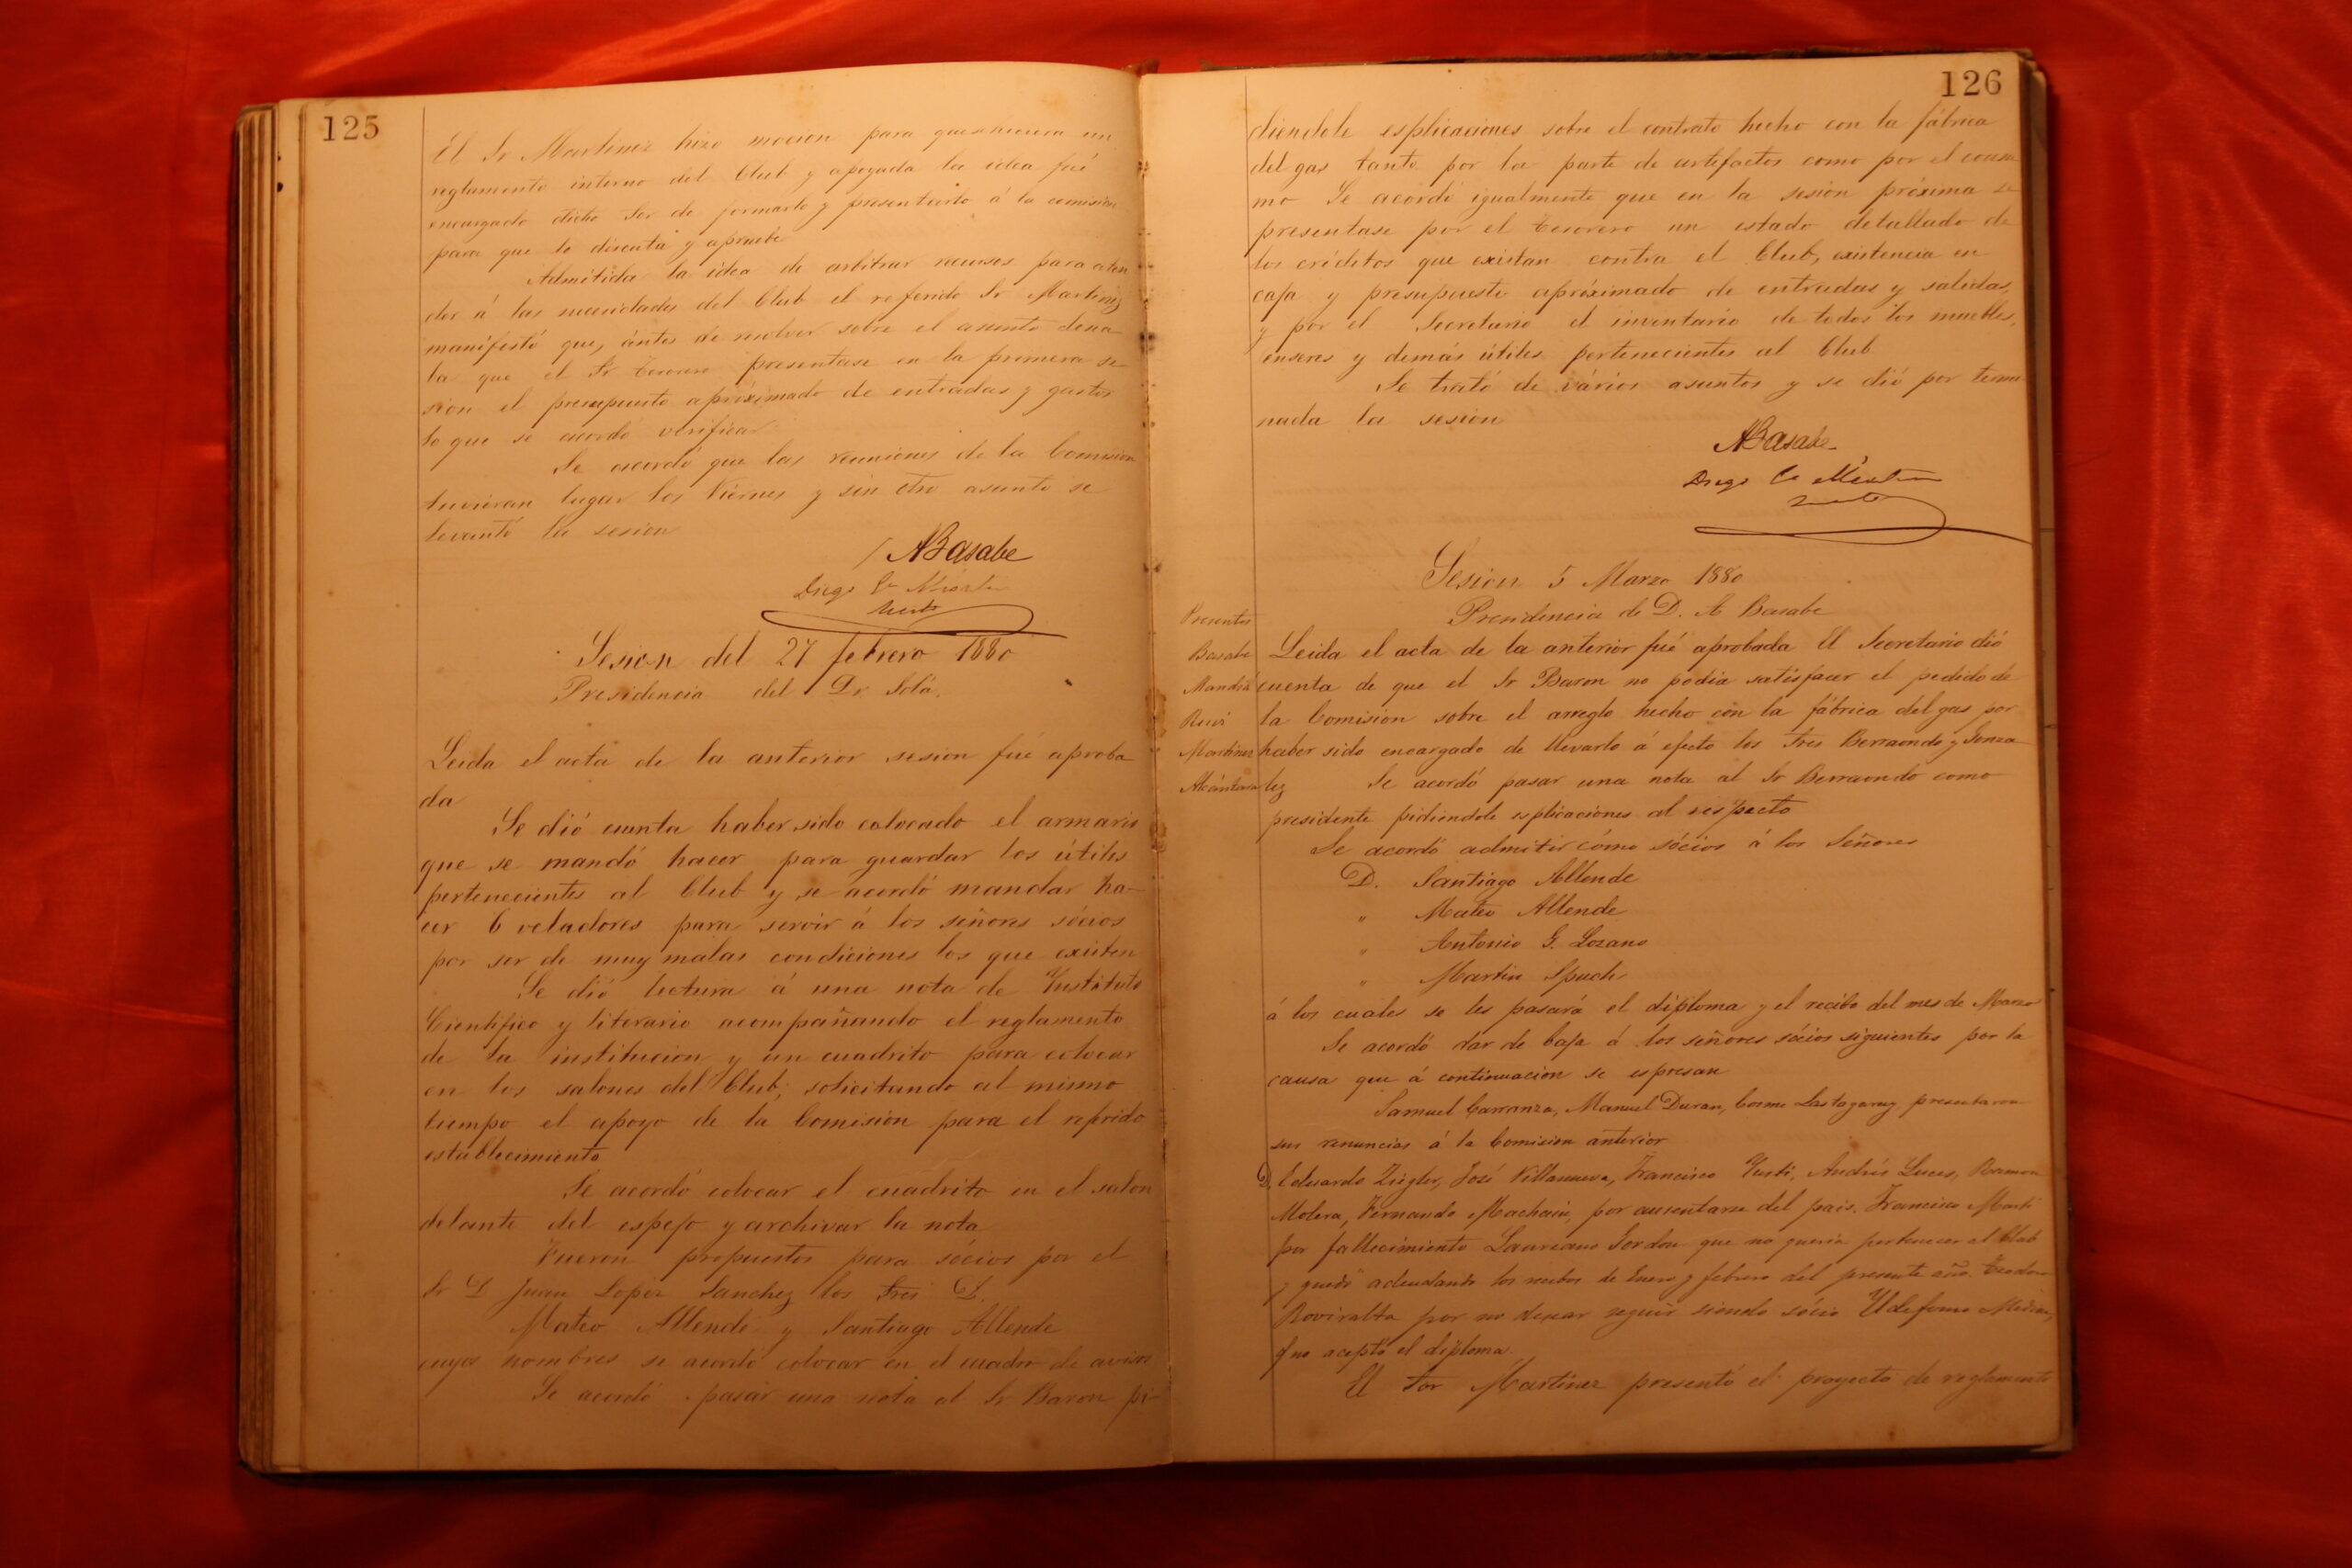 125
El Sr Martinez hizo mocion para que se hiciera un
reglamento interno del Club y apoyada la idea fué
encargado dicho Sor de formarlo y presentarlo á la comision
para que lo discuta y apruebe
Admitida la idea de arbitrar recursos para aten
der á las necesidades del Club el referido Sr Martinez
manifestó que, ántes de resolver sobre el asunto desea
ba que el Sr Tesorero presentase en la primera se
sion el presupuesto apróximado de entradas y gastos
lo que se acordó verificar
Se acordó que las reuniones de la Comision
tuvieran lugar los Viernes y sin otro asunto se
levantó la sesion
ABasabe
Diego
Sesion del 27 febrero 1880
Presidencia del Dr Solá.
Leida el acta de la anterior sesion fué aproba
da
Se dió cuenta haber sido colocado el armario
que se mandó hacer para guardar los útiles
pertenecientes al Club y se acordó mandar ha-
cer 6 veladores para servir á los señores sócios
por ser de muy malas condiciones los que existen
Se dió lectura á una nota de Instituto
Cientifico y literario acompañando el reglamento
de la institucion y un cuadrito para colocar
en los salones del Club; solicitando al mismo
tiempo el apoyo de la Comision para el referido
establecimiento
Se acordó colocar el cuadrito en el salon
delante del espejo y archivar la nota
Fueron propuestos para sócios por el
Sr D Juan Lopez Sanchez los Sres D.
Mateo Allende y Santiago Allende
cuyos nombres se acordó colocar en el cuadro de avisos
Se acordó pasar una nota al Sr Baron pi-
126
diendole esplicaciones sobre el contrato hecho con la fábrica
del gas tanto por la parte de artefactos como por el consu
mo Se acordó igualmente que en la sesion próxima se
presentase por el Tesorero un estado detallado de
los créditos que existan contra el Club, existencia en
caja y presupuesto apróximado de entradas y salidas,
y por el Secretario el inventario de todos los muebles,
enseres y demás útiles pertenecientes al Club
Se trató de vários asuntos y se dió por termi
nada la sesion
ABasabe
Diego
Sesion 5 Marzo 1880
Presidencia de D. A Basabe
Presentes
Basabe
Martinez
Alcántara
Leida el acta de la anterior fué aprobada El Secretario dió
cuenta de que el Sr Baron no podia satisfacer el pedido de
la Comision sobre el arreglo hecho con la fábrica del gas por
haber sido encargado de llevarlo á efecto los Sres Berraondo y Gonza
lez Se acordó pasar una nota al Sr Berraondo como
presidente pidiendole esplicaciones al respecto
Se acordó admitir cómo sócios á los Señores
D. Santiago Allende
" Mateo Allende
" Antonio G. Lozano
" Martin Spuch
á los cuales se les pasará el diploma y el recibo del mes de Marzo
Se acordó dar de baja á los señores sócios siguientes por la
causa que á continuacion se espresan
Samuel Carranza, Manuel Duran, Cosme presentaron
sus renuncias á la Comision anterior
D. Eduardo Ziegler, José Villanueva, Francisco Andrés Luces, Ramon
Molera, Fernando Machain, por ausentarse del pais. Francisco Marti
por fallecimiento Laureano Gordon que no queria pertenecer al Club
y quedó adeudando los recibos de Enero y febrero del presente año. Teodoro
Roviralta por no desear seguir siendo sócio Ildefonso
q no aceptó el diploma.
El Sor Martinez presentó el proyecto de reglamento